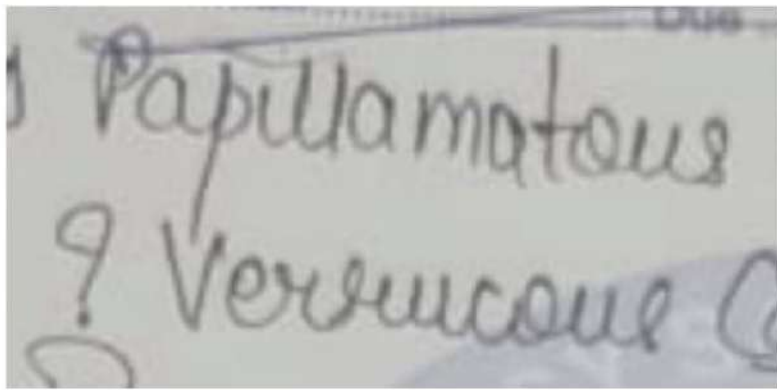 Due
Papillamatous
? Verrucous